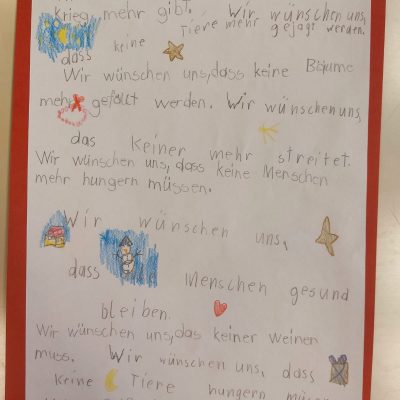 Krieg mehr gibt. Wir wünschen uns,
dass keine Tiere mehr gejagt werden.
Wir wünschen uns, dass keine Bäume
mehr gefällt werden. Wir wünschen uns,
das Keiner mehr streitet.
Wir wünschen uns, dass keine Menschen
mehr hungern müssen.
Wir wünschen uns,
dass Menschen gesund
bleiben.
Wir wünschen uns, das keiner weinen
muss. Wir wünschen uns, dass
Keine Tiere hungern müssen